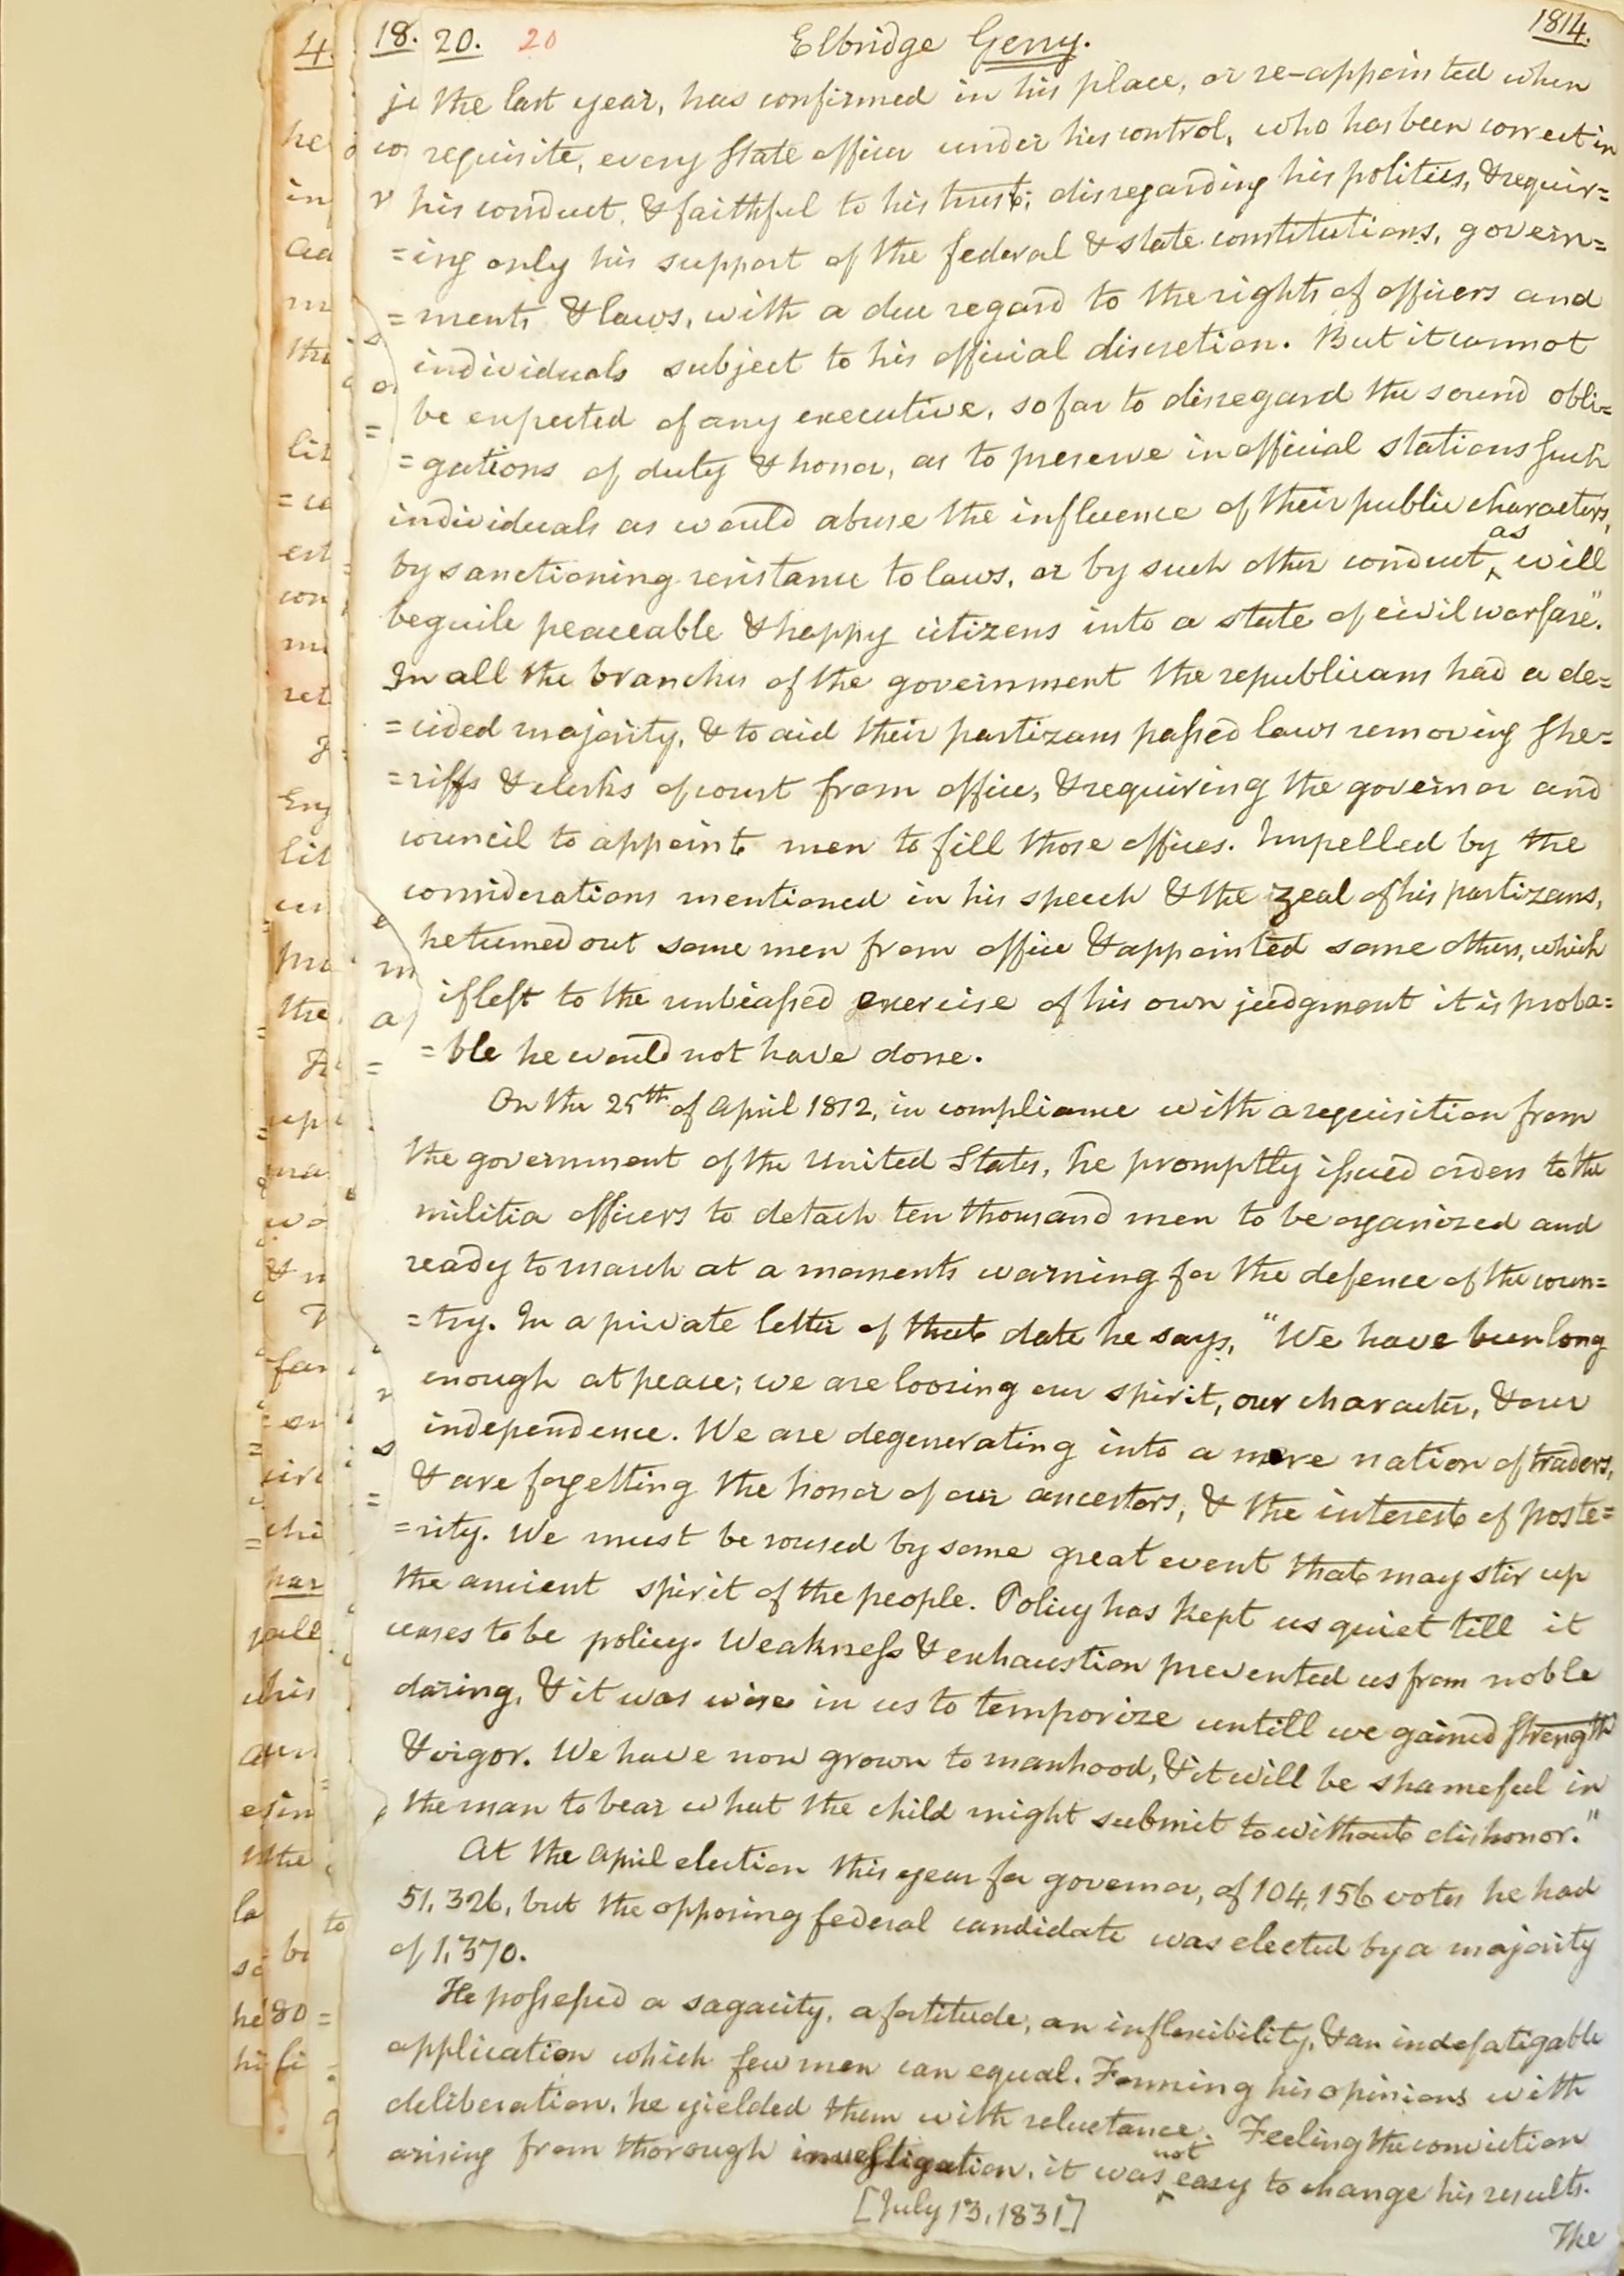 18. 20. 20 Elbridge Gerry. 1814.
the last year, has confirmed in his place, or re-appointed when
requisite, every state officer under his control, who has been correct in
his conduct, & faithful to his trust; disregarding his politics, & requir=
=ing only his support of the federal & state constitutions, govern=
=ments & laws, with a due regard to the rights of officers and
individuals subject to his official discretion. But it cannot
be expected of any executive, so far to disregard the sound obli=
=gations of duty & honor, as to preserve in official stations such
individuals as would abuse the influence of their public characters,
by sanctioning resistance to laws, or by such other conduct, ^as will
beguile peaceable & happy citizens into a state of civil warfare."
In all the branches of the government the republicans had a de=
=cided majority, & to aid their partizans passed laws removing she=
=riffs & clerks of court from office, & requiring the governor and
council to appoint men to fill those offices. Impelled by the
considerations mentioned in his speech & the zeal of his partizans,
he turned out some men from office & appointed some others, which
if left to the unbiassed exercise of his own judgment it is proba=
=ble he would not have done.
On the 25th of April 1812, in compliance with a requisition from
the government of the United States, he promptly issued orders to the
militia officers to detach ten thousand men to be organized and
ready to march at a moments warning for the defence of the coun=
=try. In a private letter of that date he says, "We have been long
enough at peace; we are loosing our spirit, our character, & our
independence. We are degenerating into a mere nation of traders,
& are forgetting the honor of our ancestors, & the interest of poste=
=rity. We must be roused by some great event that may stir up
the ancient spirit of the people. Policy has kept us quiet till it
ceases to be policy. Weakness & exhaustion prevented us from noble
daring, & it was wise in us to temporize untill we gained strength
& vigor. We have now grown to manhood, & it will be shameful in
the man to bear what the child might submit to without dishonor."
At the April election this year for governor, of 104,156 votes he had
51,326, but the opposing federal candidate was elected by a majority
of 1,370.
He possessed a sagacity, a fortitude, an inflexibility, & an indefatigable
application which few men can equal. Forming his opinions with
deliberation, he yielded them with reluctance. Feeling the conviction
arising from thorough investigation, it was ^not easy to change his results.
[July 13, 1831]
The